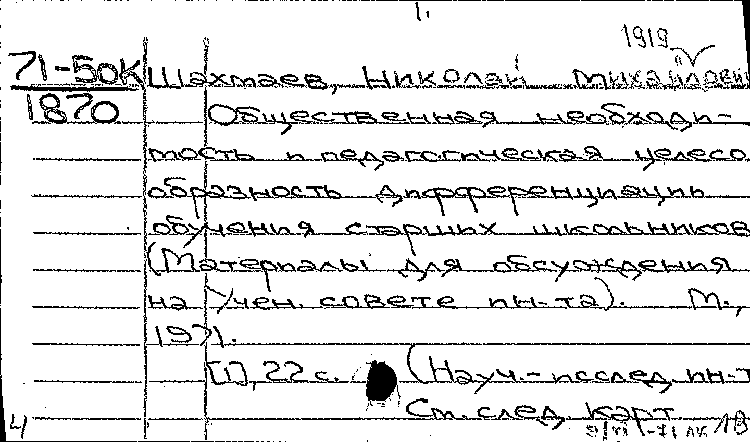 1.
1919
71-50К Шахмаев, Николай Михайлови
1870 Общественная необходи-
мость и педагогическая целесо
образность дифференциации
обучения старших школьников
(Материалы для обсуждения
на Учен. совете ин-та). М.,
1971.
[1], 22 с. (Науч.-исслед. ин-т
См. след. карт.
4